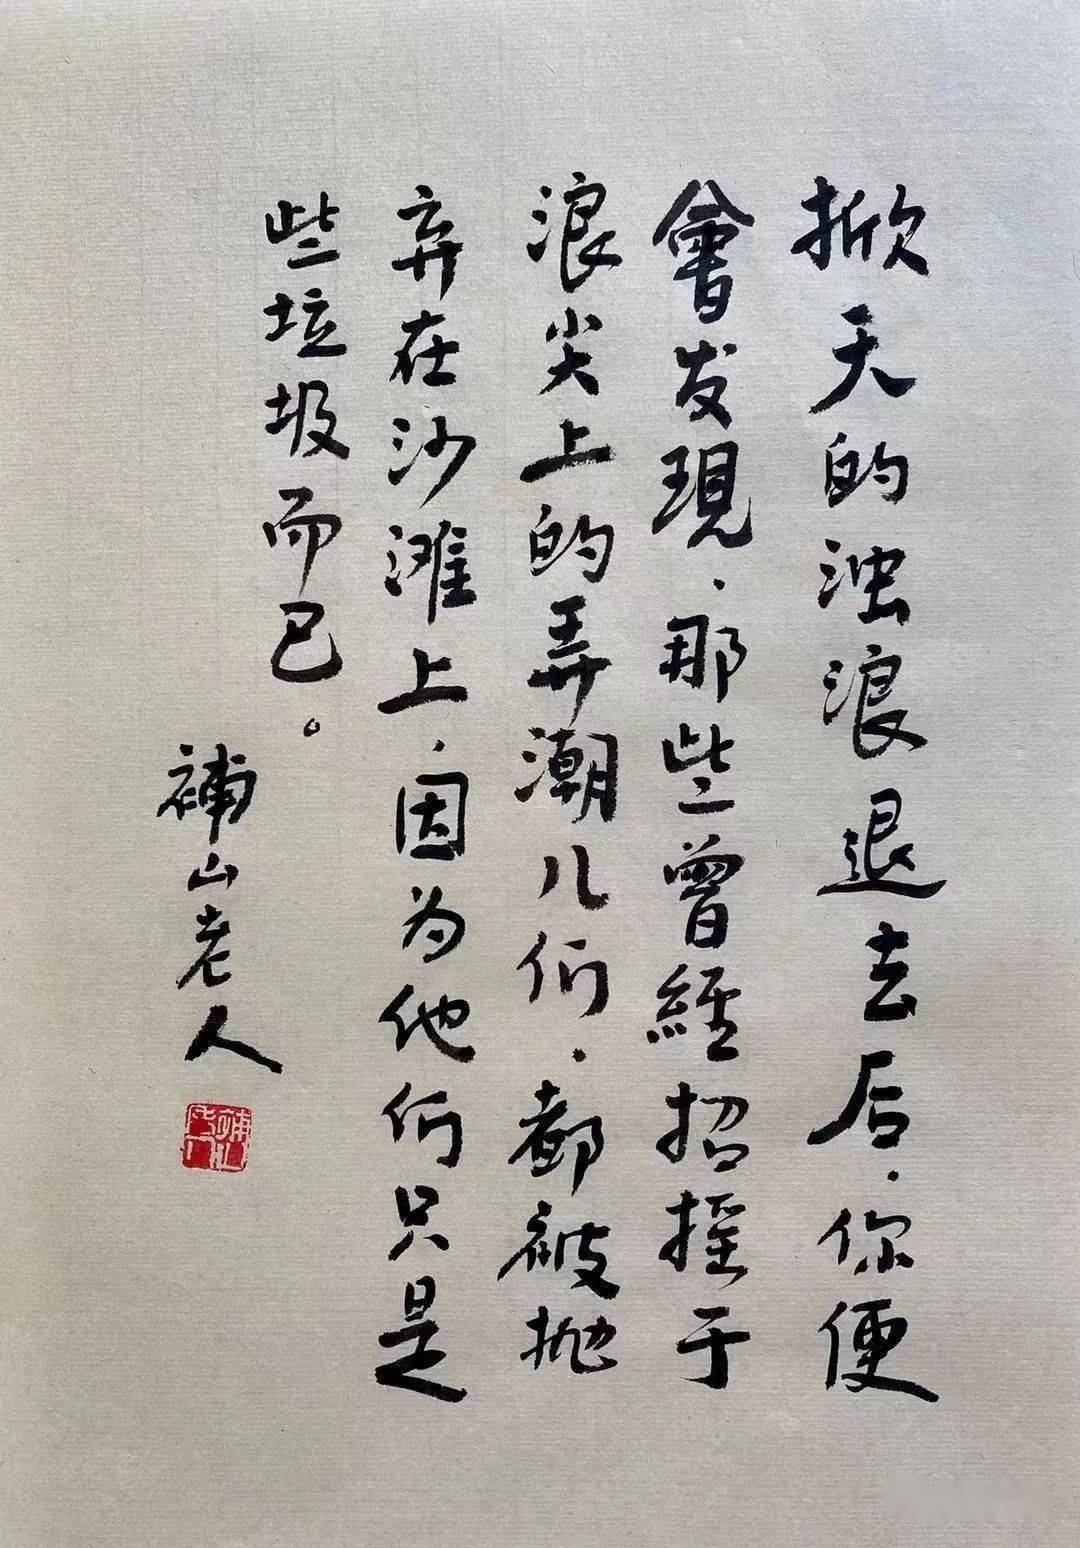 掀天的浊浪退去后，你便
會发現，那些曾經招摇于
浪尖上的弄潮儿们，都被抛
弃在沙滩上，因为他们只是
些垃圾而已。
補山老人